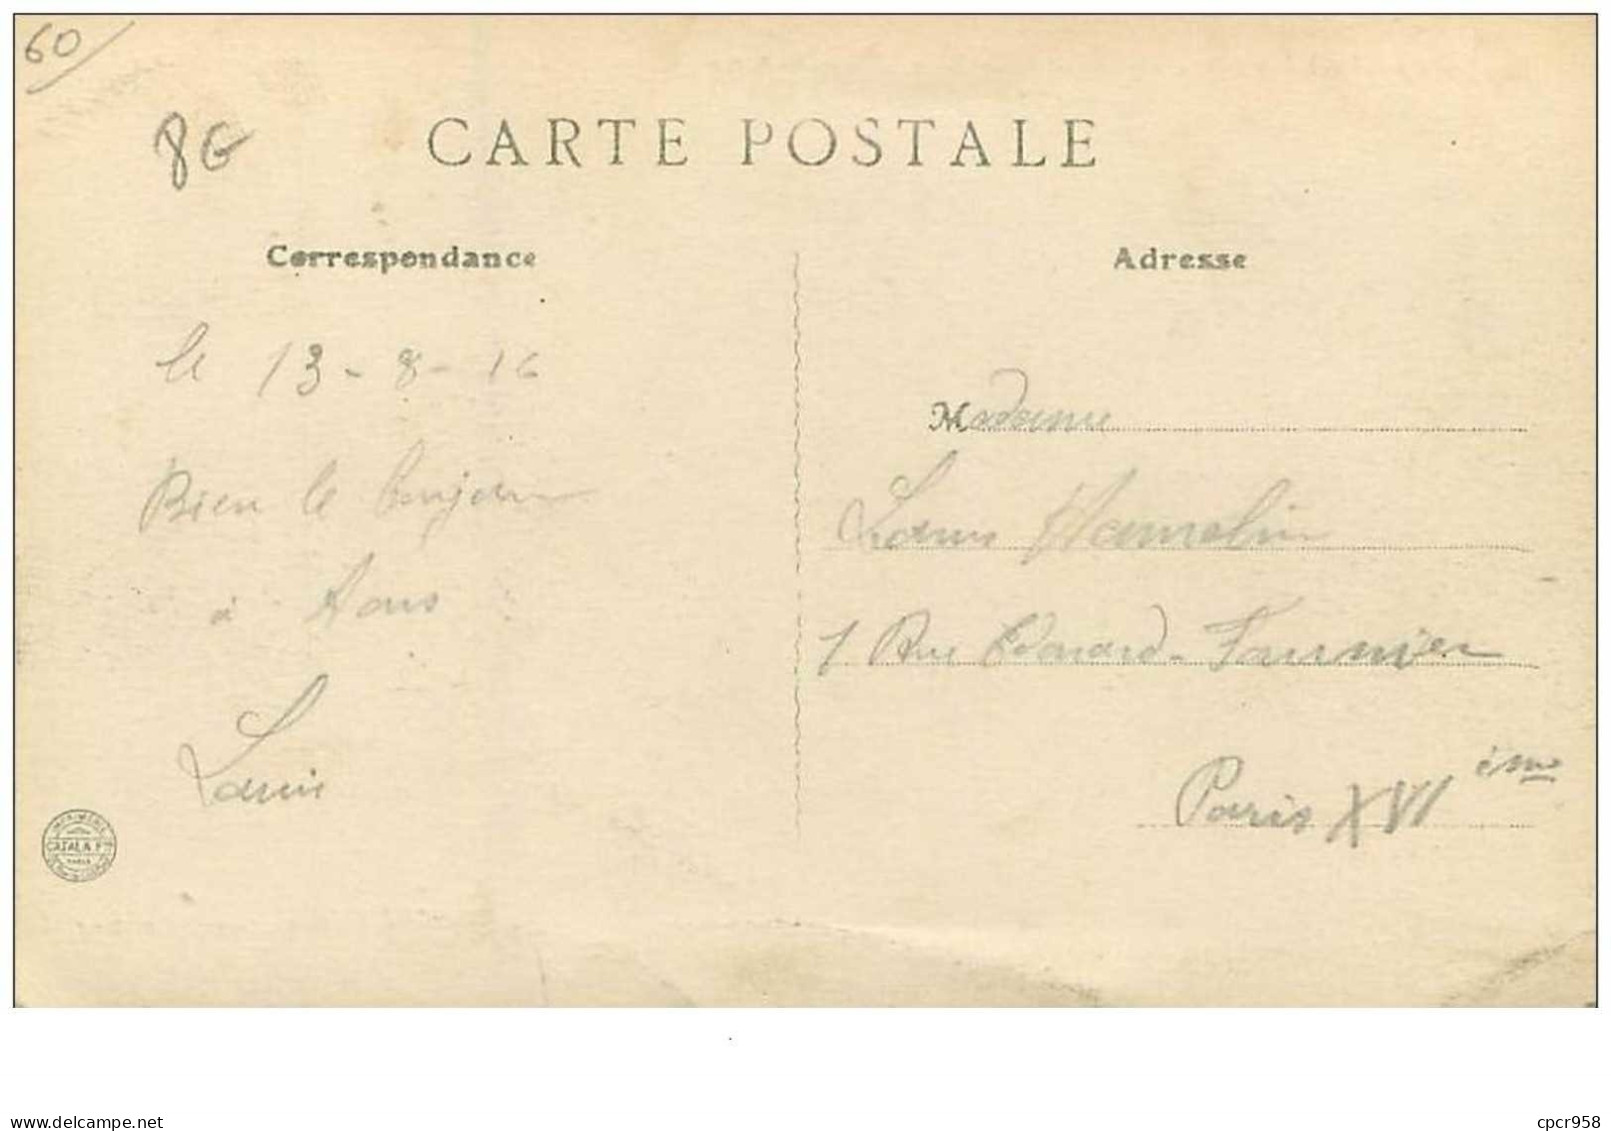 60
8€
CARTE POSTALE
Correspondance
Adresse
le 13-8-16
Bien le bonjour
à tous
Louis
Madame
Louis Hamelin
1 Rue Edouard-Fournier
Paris XVI ème
IMPRIMERIE
CATALA Fres
PARIS
delcampe.net
cpcr958